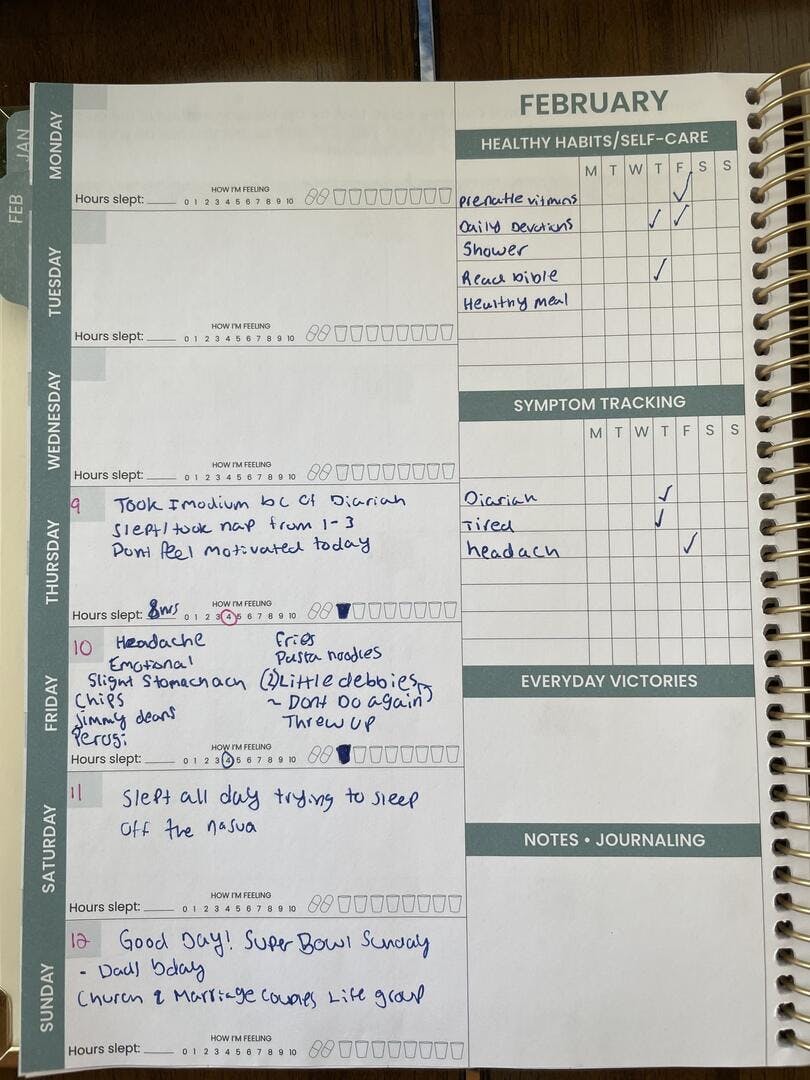 JAN
FEB
MONDAY
HOW I'M FEELING
Hours slept: 0 1 2 3 4 5 6 7 8 9 10
TUESDAY
HOW I'M FEELING
Hours slept: 0 1 2 3 4 5 6 7 8 9 10
WEDNESDAY
HOW I'M FEELING
Hours slept: 0 1 2 3 4 5 6 7 8 9 10
THURSDAY
9 Took Imodium bc of Diariah
Slept/took nap from 1-3
Dont feel motivated today
HOW I'M FEELING
Hours slept: 8hrs 0 1 2 3 4 5 6 7 8 9 10
FRIDAY
10 Headache
Emotional
Slight Stomachach
Chips
Jimmy deans
Perogi
Fries
Pasta noodles
(2) Little debbies
~ Dont Do again
Threw up
HOW I'M FEELING
Hours slept: 0 1 2 3 4 5 6 7 8 9 10
SATURDAY
11 Slept all day trying to sleep
off the nasua
HOW I'M FEELING
Hours slept: 0 1 2 3 4 5 6 7 8 9 10
SUNDAY
12 Good Day! Super Bowl Sunday
- Dads bday
Church & Marriage Couples Life group
HOW I'M FEELING
Hours slept: 0 1 2 3 4 5 6 7 8 9 10
FEBRUARY
HEALTHY HABITS/SELF-CARE
M T W T F S S
prenatle vitmins
Daily Devotions
Shower
Read bible
Healthy meal
SYMPTOM TRACKING
M T W T F S S
Diariah
Tired
headach
EVERYDAY VICTORIES
NOTES • JOURNALING